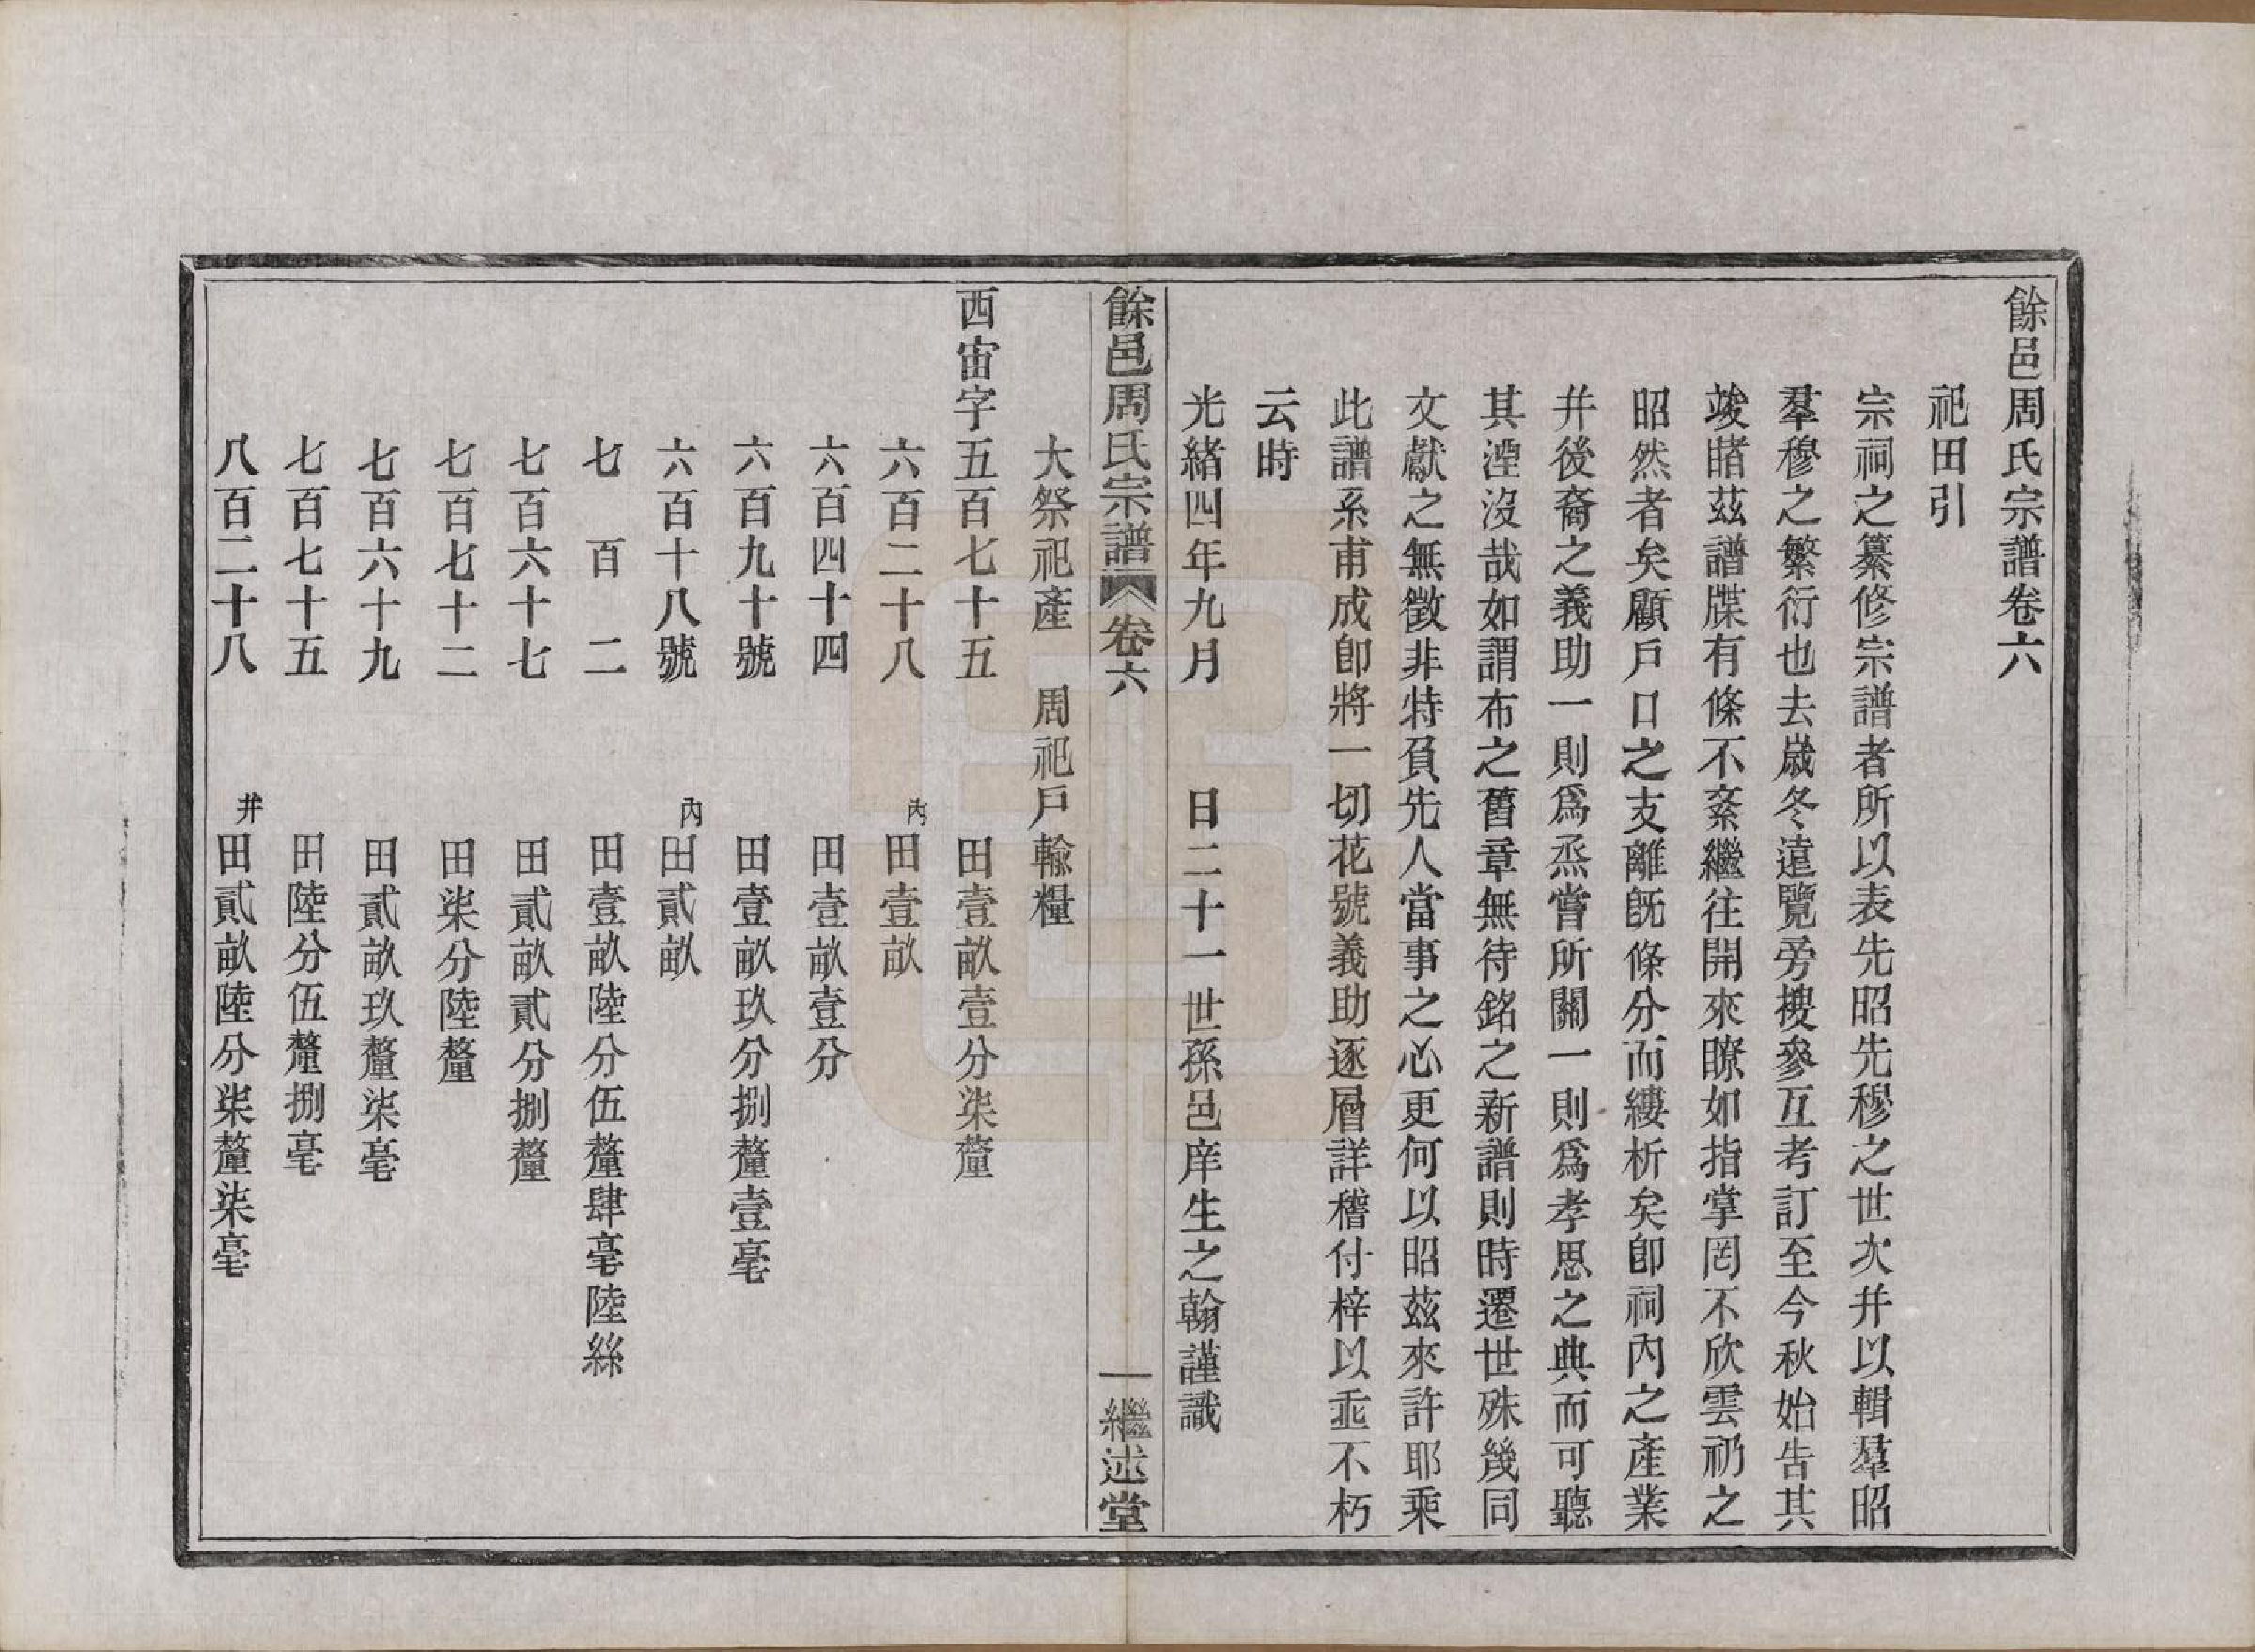 餘邑周氏宗譜卷六
祀田引
宗祠之纂修宗譜者所以表先昭先穆之世次并以輯羣昭
羣穆之繁衍也去歲冬遠覽旁搜參互考訂至今秋始告其
竣睹茲譜牒有條不紊繼往開來瞭如指掌罔不欣雲礽之
昭然者矣顧戶口之支離旣條分而縷析矣卽祠內之產業
并後裔之義助一則爲烝嘗所關一則爲孝思之典而可聽
其湮沒哉如謂布之舊章無待銘之新譜則時遷世殊幾同
文獻之無徵非特負先人當事之心更何以昭茲來許耶乘
此譜系甫成卽將一切花號義助逐層詳稽付梓以垂不朽
云時
光緒四年九月　　日二十一世孫邑庠生之翰謹識
餘邑周氏宗譜　卷六　一　繼述堂
大祭祀產　周祀戶輸糧
西宙字五百七十五　田壹畝壹分柒釐
六百二十八　內田壹畝
六百四十四　田壹畝壹分
六百九十號　田壹畝玖分捌釐壹毫
六百十八號　內田貳畝
七百二　田壹畝陸分伍釐肆毫陸絲
七百六十七　田貳畝貳分捌釐
七百七十二　田柒分陸釐
七百六十九　田貳畝玖釐柒毫
七百七十五　田陸分伍釐捌毫
八百二十八　并田貳畝陸分柒釐柒毫